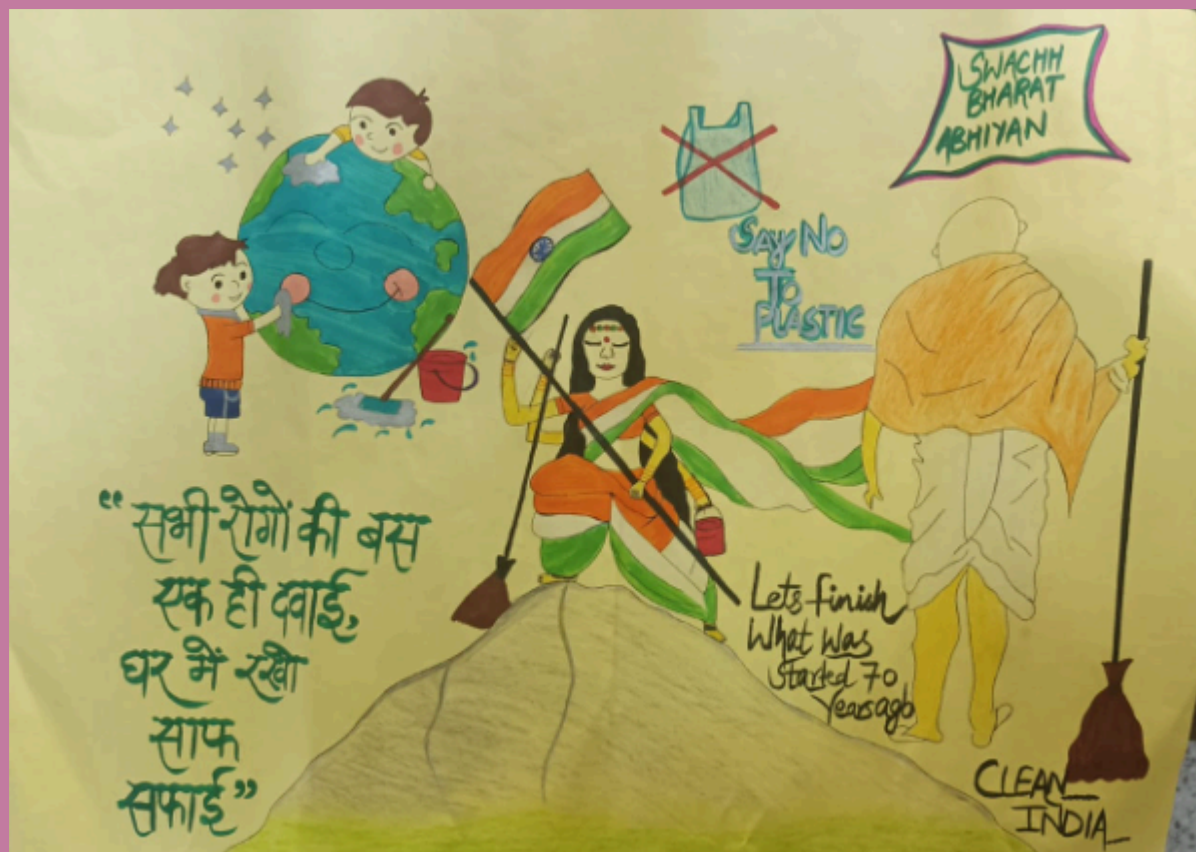 SWACHH
BHARAT
ABHIYAN
SAY NO
TO
PLASTIC
“सभी रोगों की बस
एक ही दवाई,
घर में रखो
साफ
सफाई”
Lets finish
What was
started 70
Years ago
CLEAN
INDIA